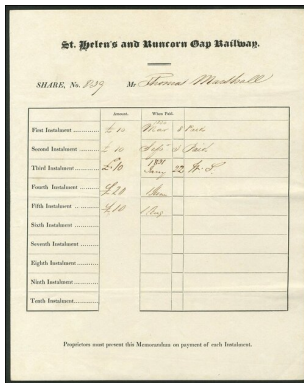 St. Helen's and Runcorn Gap Railway.
SHARE, No. 839 Mr Thomas
Amount. When Paid.
First Instalment ............ £10 Mar
Second Instalment ............ £10 Sepr Paid.
Third Instalment ............ £10 1831 Jany 22
Fourth Instalment ............ £20
Fifth Instalment ............ £10 1 Aug
Sixth Instalment ............
Seventh Instalment ............
Eighth Instalment ............
Ninth Instalment ............
Tenth Instalment ............
Proprietors must present this Memorandum on payment of each Instalment.